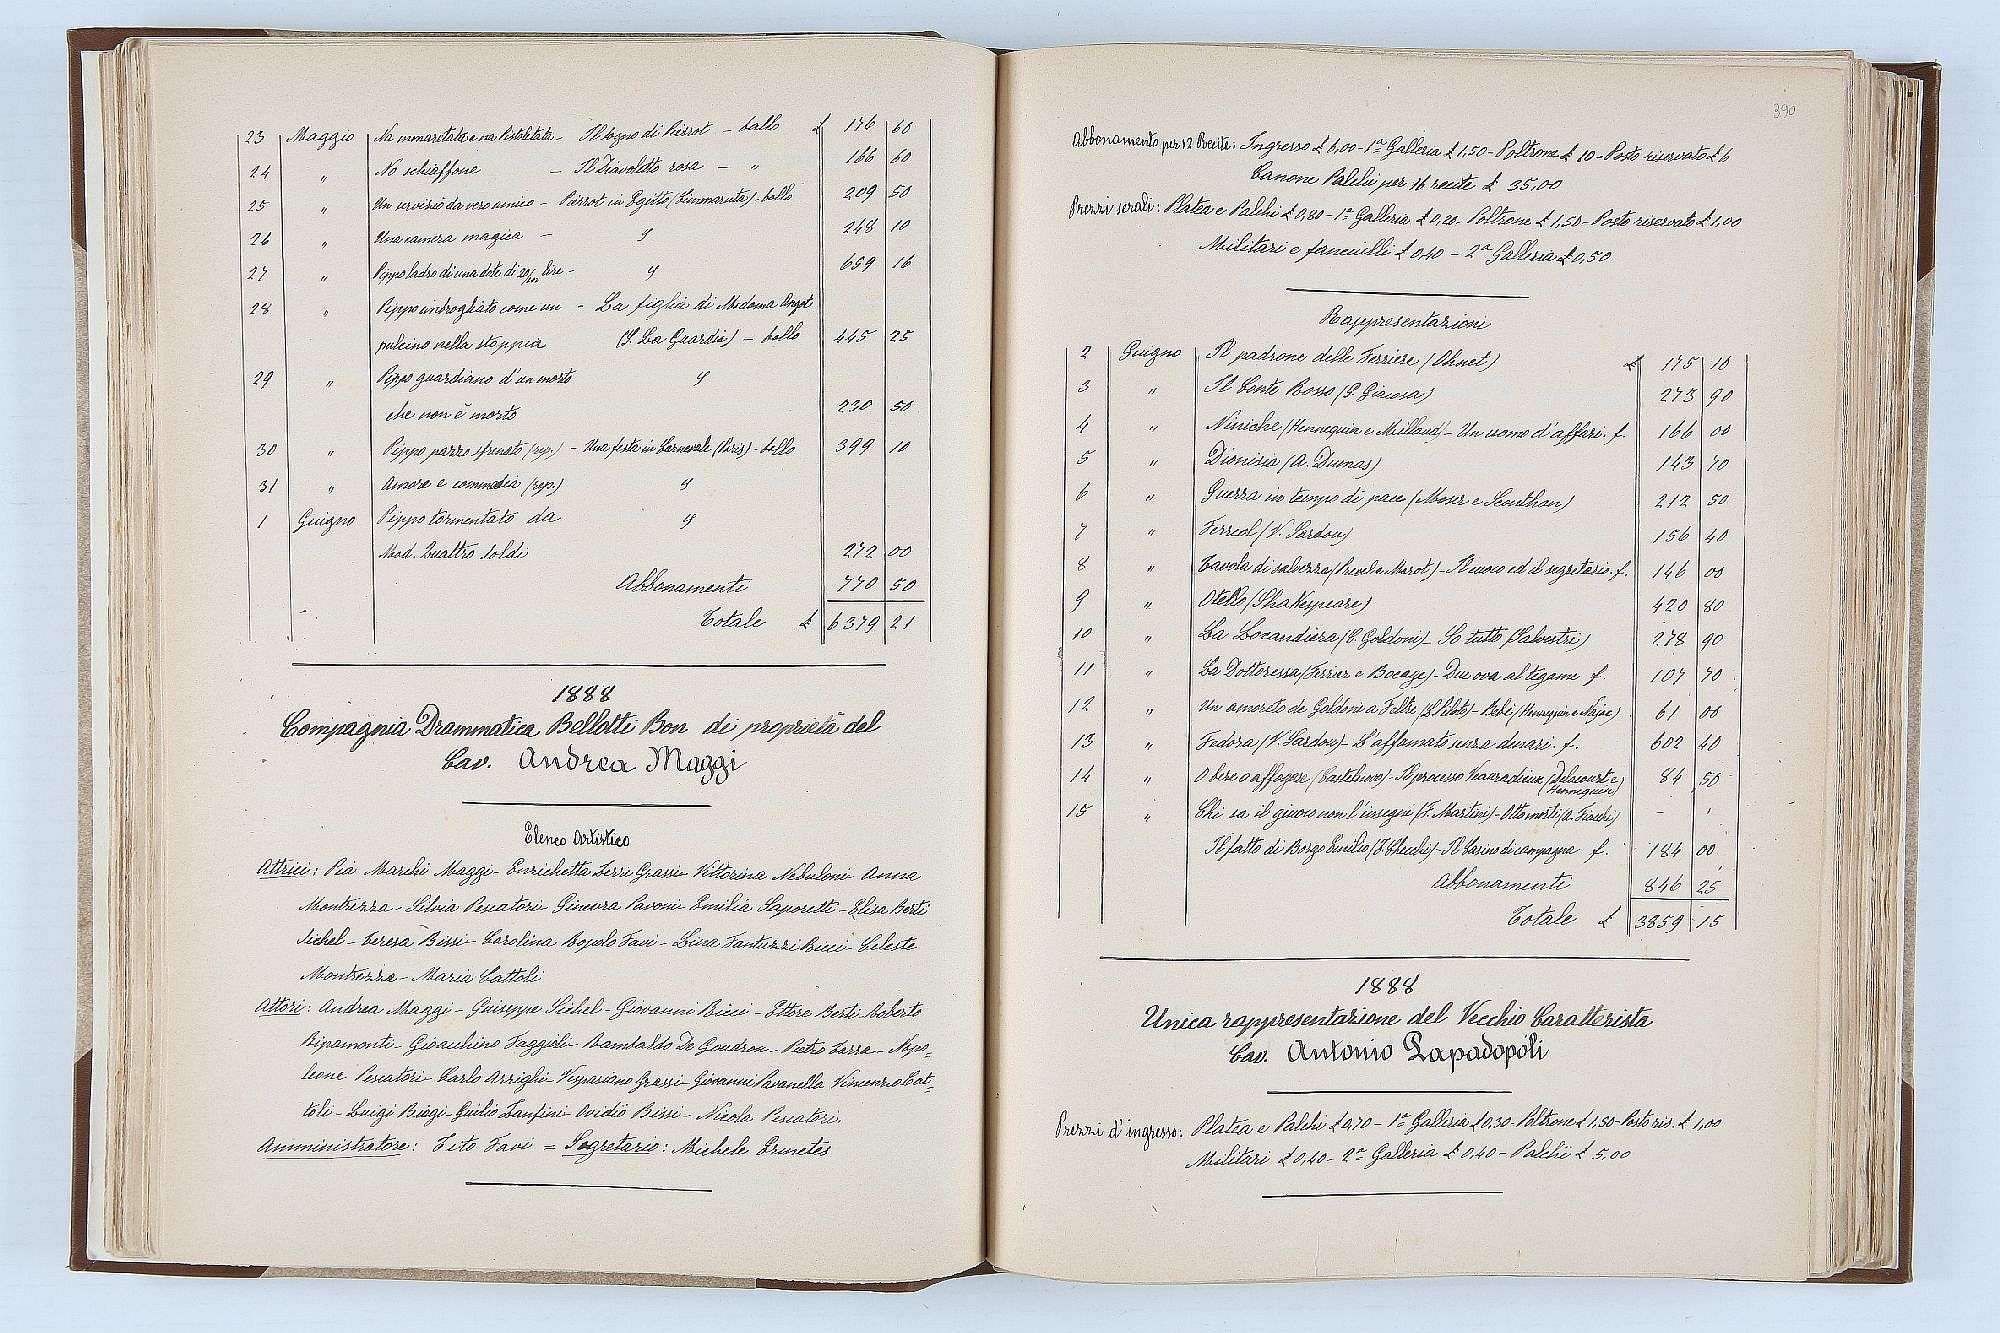 23 Maggio Na mmaretata e na Vetoletata - Il sogno di Pierrot - ballo £ 176 60
24 " No schiaffone - Il Diavoletto rosa - " 166 60
25 " Un servizio da vero amico - Pierrot in Egitto (Cammarata) - ballo 209 50
26 " Una camera magica - " 248 10
27 " Pippo ladro di una dote di 20/m lire - " 659 16
28 " Pippo imbrogliato come un - La figlia di Madama Angot
pulcino nella stoppia (S. La Guardia) - ballo 445 25
29 " Pippo guardiano d'un morto "
che non è morto 230 50
30 " Pippo pazzo sfrenato (rep.) - Una festa in Carnevale (Paris) - ballo 399 10
31 " Amore e commedia (rep.) "
1 Giugno Pippo tormentato da "
Mad. Quattro soldi 272 00
Abbonamenti 770 50
Totale £ 6379 21
1888
Compagnia Drammatica Bellotti Bon di proprietà del
Cav. Andrea Maggi
Elenco Artistico
Attrici: Pia Marchi Maggi - Enrichetta Zerri Grassi - Vittorina Nebuloni Anna
Montrezza - Silvia Pescatori Ginevra Pavoni - Emilia Saporetti - Elisa Berti
Sichel - Teresa Bissi - Carolina Bopolo Favi - Lina Fantuzzi Bicci - Celeste
Montrezza - Maria Cattoli
Attori: Andrea Maggi - Giuseppe Sichel - Giovanni Bicci - Ettore Berti - Roberto
Ripamonti - Gioacchino Faggioli - Rambaldo De Goudron - Pietro Farra - Napo-
leone Pescatori - Carlo Arrighi - Vespasiano Grassi - Giovanni Pavanella Vincenzo Cat-
toli - Luigi Biagi - Giulio Zanfini - Ovidio Bissi - Nicola Pescatori
Amministratore: Tito Favi = Segretario: Michele Ermetes
390
Abbonamento per 12 Recite: Ingresso £ 6,00 - 1ª Galleria £ 1,50 - Poltrone £ 10 - Posto riservato £ 6
Canone Palchi per 16 recite £ 35,00
Prezzi serali: Platea e Palchi £ 0,80 - 1ª Galleria £ 0,20 - Poltrone £ 1,50 - Posto riservato £ 1,00
Militari e fanciulli £ 0,40 - 2ª Galleria £ 0,50
Rappresentazioni
2 Giugno Il padrone delle Ferriere (Ohnet) £ 175 10
3 " Il Conte Rosso (G. Giacosa) 273 90
4 " Niniche (Hennequin e Millaud) - Un uomo d'affari. f. 166 00
5 " Dionisia (A. Dumas) 143 70
6 " Guerra in tempo di pace (Moser e Scönthan) 212 50
7 " Ferreol (V. Sardou) 156 40
8 " Tavola di salvezza - Il cuoco ed il segretario. f. 146 00
9 " Otello (Shakespeare) 420 80
10 " La Locandiera (C. Goldoni) - So tutto (Salvestri) 278 90
11 " La Dottoressa (Ferrier e Bocage) - Due ova al tegame f. 107 70
12 " Un amoreto de Goldoni a Feltre (L. Pilotto) - Bebé (Hennequin e Najac) 61 00
13 " Fedora (V. Sardou) - L'affamato senza denari. f. 602 40
14 " O bere o affogare (Castelnovo) - Il processo Veauradieux (Delacourt e Hennequin) 84 50
15 " Chi sa il giuoco non l'insegni (F. Martini) - Otto morti (A. Fiacchi) - "
Il fatto di Borgo Emilio - Il Casino di campagna f. 184 00
Abbonamenti 846 25
Totale £ 3859 15
1888
Unica rappresentazione del Vecchio Caratterista
Cav. Antonio Papadopoli
Prezzi d'ingresso: Platea e Palchi £ 0,70 - 1ª Galleria £ 0,30 - Poltrone £ 1,50 - Posto ris. £ 1,00
Militari £ 0,40 - 2ª Galleria £ 0,40 - Palchi £ 5,00